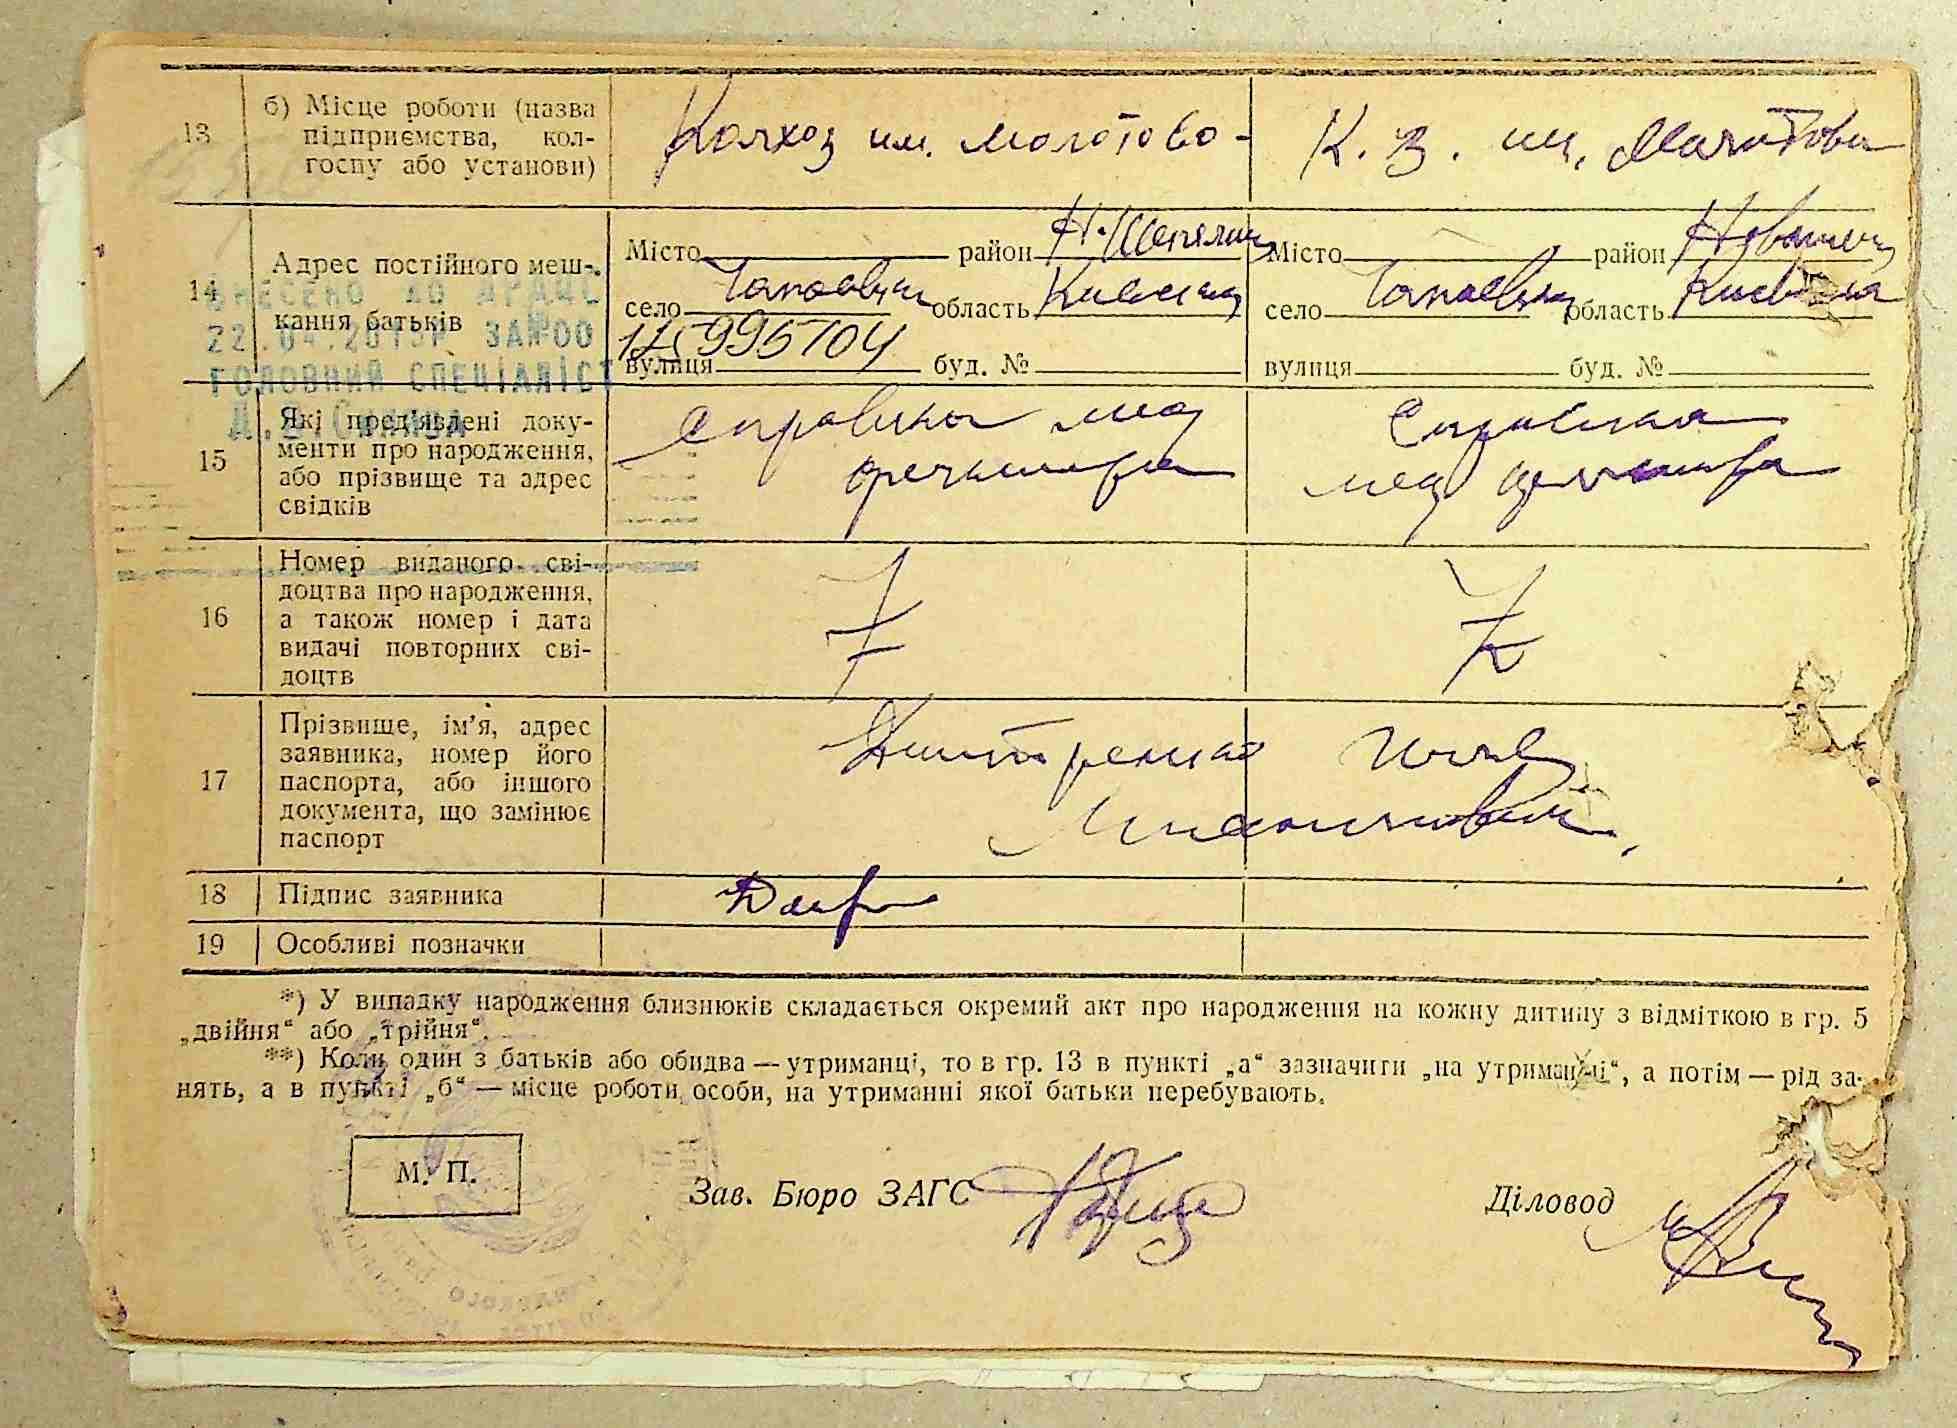 13
б) Місце роботи (назва
підприємства, кол-
госпу або установи)
Колхоз им. Молотово-
К. з. им. Молотова
14
Адрес постійного меш-
кання батьків
Місто район Н-Шепелич
село область Киевская
вулиця буд. №
175995704
Місто район
село область Киевская
вулиця буд. №
ВНЕСЕНО ДО ДРАЦС
ГОЛОВНИЙ СПЕЦІАЛІСТ
15
Які пред'явлені доку-
менти про народження,
або прізвище та адрес
свідків
Справка мед
фельдшера
Справка
мед фельдшера
16
Номер виданого сві-
доцтва про народження,
а також номер і дата
видачі повторних сві-
доцтв
17
Прізвище, ім'я, адрес
заявника, номер його
паспорта, або іншого
документа, що замінює
паспорт
18
Підпис заявника
19
Особливі позначки
*) У випадку народження близнюків складається окремий акт про народження на кожну дитину з відміткою в гр. 5
„двійня“ або „трійня“.
**) Коли один з батьків або обидва — утриманці, то в гр. 13 в пункті „а“ зазначити „на утриманні“, а потім — рід за-
нять, а в пункті „б“ — місце роботи особи, на утриманні якої батьки перебувають.
М. П.
Зав. Бюро ЗАГС
Діловод